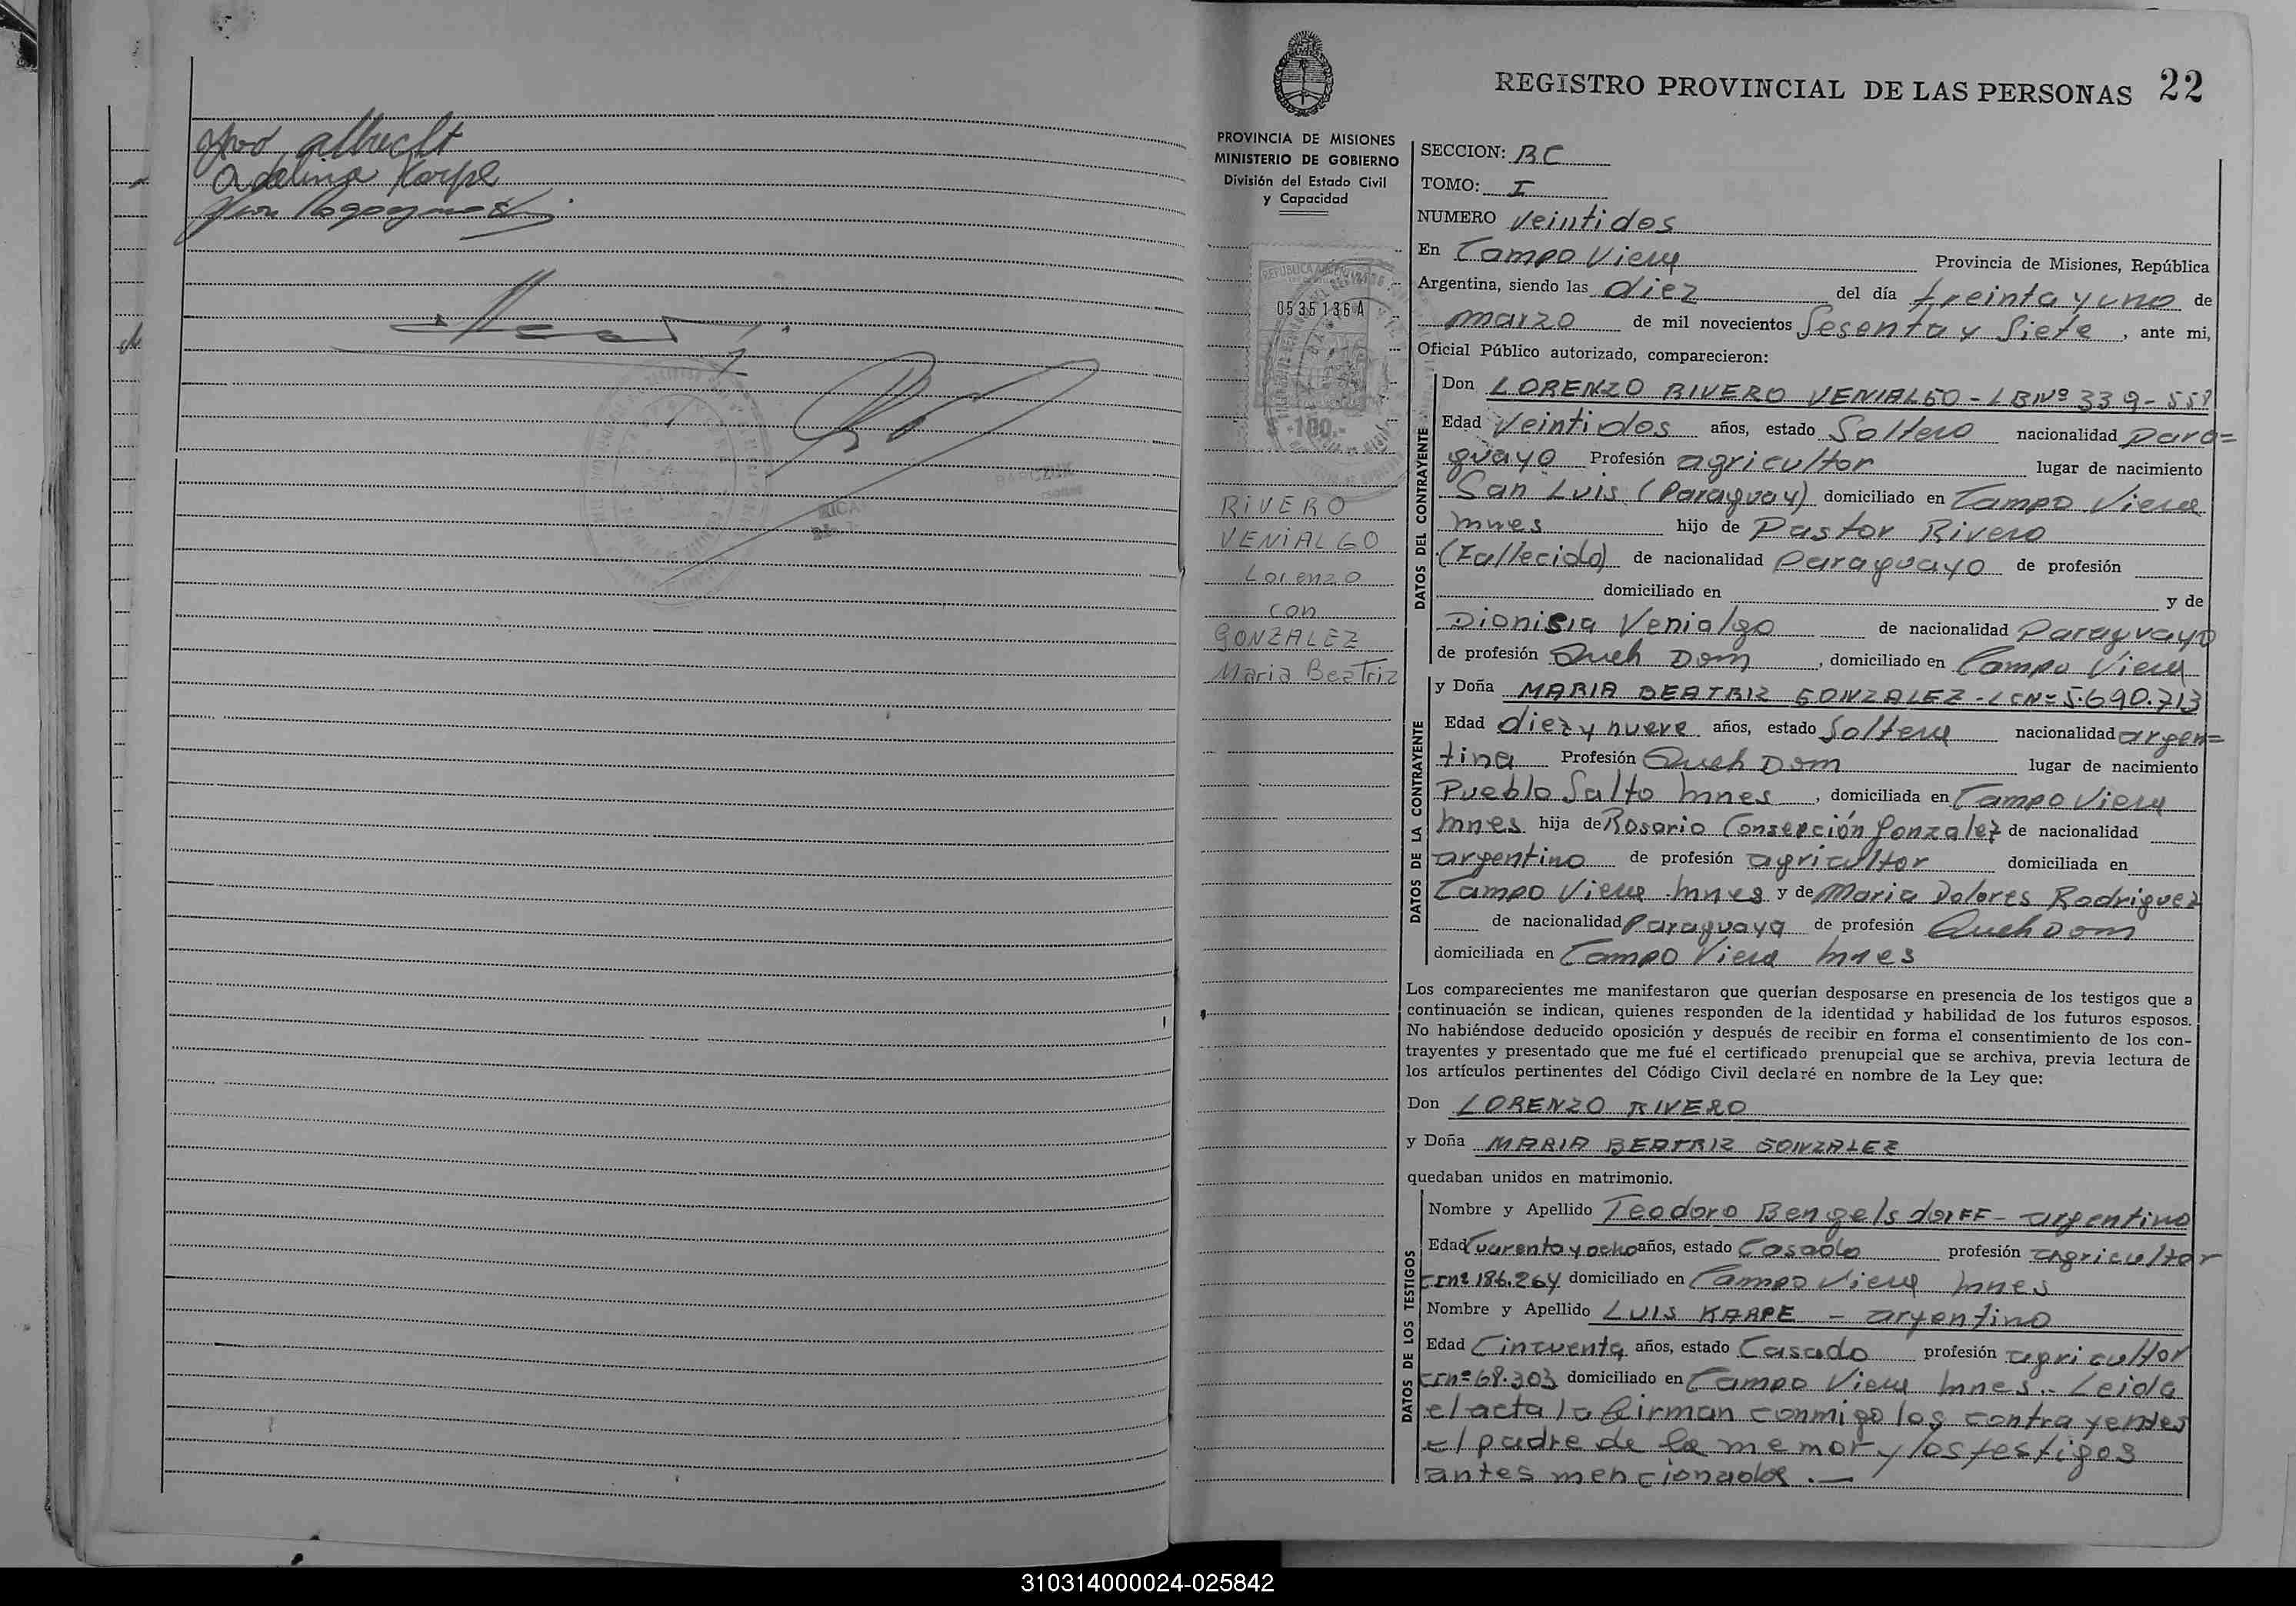 albrecht
Adelina Karpe
REGISTRO PROVINCIAL DE LAS PERSONAS 22
PROVINCIA DE MISIONES
MINISTERIO DE GOBIERNO
División del Estado Civil
y Capacidad
REPUBLICA ARGENTINA
0535136A
$ 100.-
RIVERO
VENIALGO
Lorenzo
con
GONZALEZ
Maria Beatriz
SECCION: BC
TOMO: I
NUMERO Veintidos
En Campo Viera Provincia de Misiones, República
Argentina, siendo las diez del día treinta y uno de
marzo de mil novecientos Sesenta y Siete, ante mi,
Oficial Público autorizado, comparecieron:
DATOS DEL CONTRAYENTE
Don LORENZO RIVERO VENIALGO - LBNº 339-558
Edad Veintidos años, estado Soltero nacionalidad para=
guayo Profesión agricultor lugar de nacimiento
San Luis (Paraguay) domiciliado en Campo Viera
Mnes hijo de Pastor Rivero
(Fallecido) de nacionalidad Paraguayo de profesión
domiciliado en y de
Dionisia Venialgo de nacionalidad Paraguaya
de profesión Queh Dom, domiciliado en Campo Viera
DATOS DE LA CONTRAYENTE
y Doña MARIA BEATRIZ GONZALEZ - LCNº 5.690.713
Edad diez y nueve años, estado Soltera nacionalidad argen=
tina Profesión Queh Dom lugar de nacimiento
Pueblo Salto Mnes, domiciliada en Campo Viera
Mnes hija de Rosario Consepción Gonzalez de nacionalidad
argentino de profesión agricultor domiciliada en
Campo Viera Mnes y de Maria Dolores Rodriguez
de nacionalidad Paraguaya de profesión Queh Dom
domiciliada en Campo Viera Mnes
Los comparecientes me manifestaron que querían desposarse en presencia de los testigos que a
continuación se indican, quienes responden de la identidad y habilidad de los futuros esposos.
No habiéndose deducido oposición y después de recibir en forma el consentimiento de los con-
trayentes y presentado que me fué el certificado prenupcial que se archiva, previa lectura de
los artículos pertinentes del Código Civil declaré en nombre de la Ley que:
Don LORENZO RIVERO
y Doña MARIA BEATRIZ GONZALEZ
quedaban unidos en matrimonio.
DATOS DE LOS TESTIGOS
Nombre y Apellido Teodoro Bengelsdorff - argentino
Edad Cuarenta y ocho años, estado Casado profesión agricultor
CInº 186.264 domiciliado en Campo Viera Mnes
Nombre y Apellido LUIS KARPE - argentino
Edad Cincuenta años, estado Casado profesión agricultor
CInº 68.303 domiciliado en Campo Viera Mnes.. Leida
el acta la firman conmigo los contrayentes
el padre de la menor y los testigos
antes mencionados.—
310314000024-025842